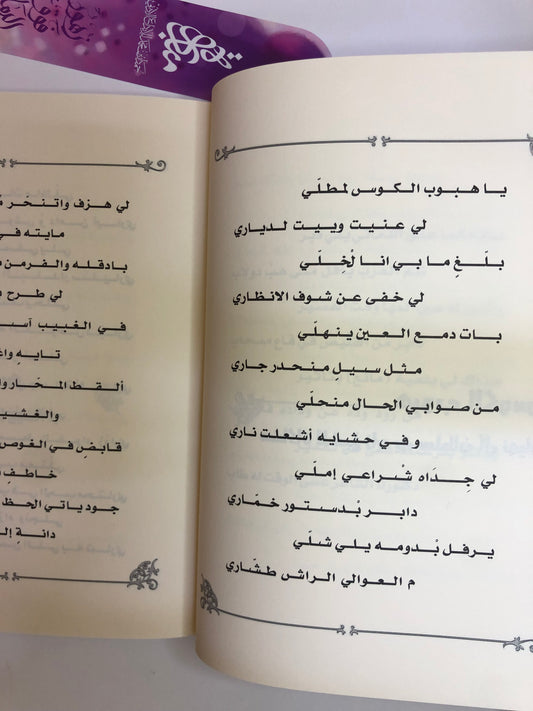 يا هبوب الكوس لمطلّي
لي عنيت وييت لدياري
بلّغ ما بي انا لْخلي
لي خفى عن شوف الانظاري
بات دمع العين ينهلّي
مثل سيلٍ منحدر جاري
من صوابي الحال منحلّي
و في حشايه أشعلت ناري
لي جِدَاه شْراعي إملي
دابر بْدستور خمّاري
يرفل بْدومه يلي شلّي
م العوالي الراش طشّاري
لي هزف واتنخر
مايته في
بادقله والفرمن
لي طرح
في الغبيب
تايهٍ
ألقط المحّار
والغشيـ
قابضٍ في الغوص
خاطفٍ
جود ياتي الحظ
دانةٍ